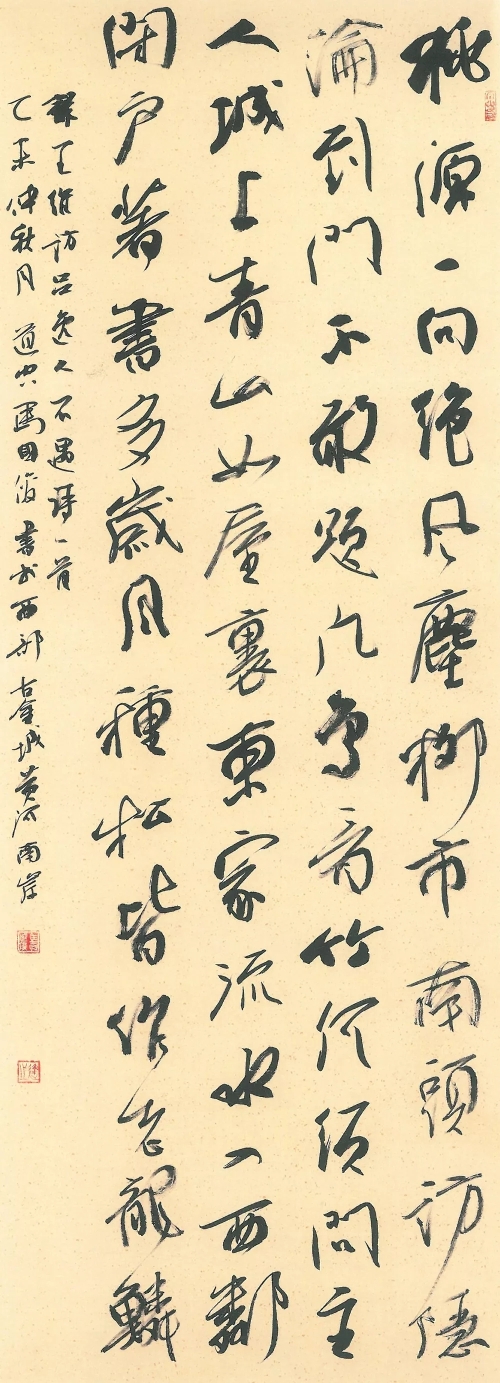 桃源一向絕風塵柳市南頭訪隱
淪到門不敢題凡鳥看竹何須問主
人城上青山如屋裏東家流水入西鄰
閉户著書多歲月種松皆作老龍鱗
錄王維訪呂逸人不遇詩一首
乙未仲秋月 道 馬國俊書於西部古金城黃河南岸